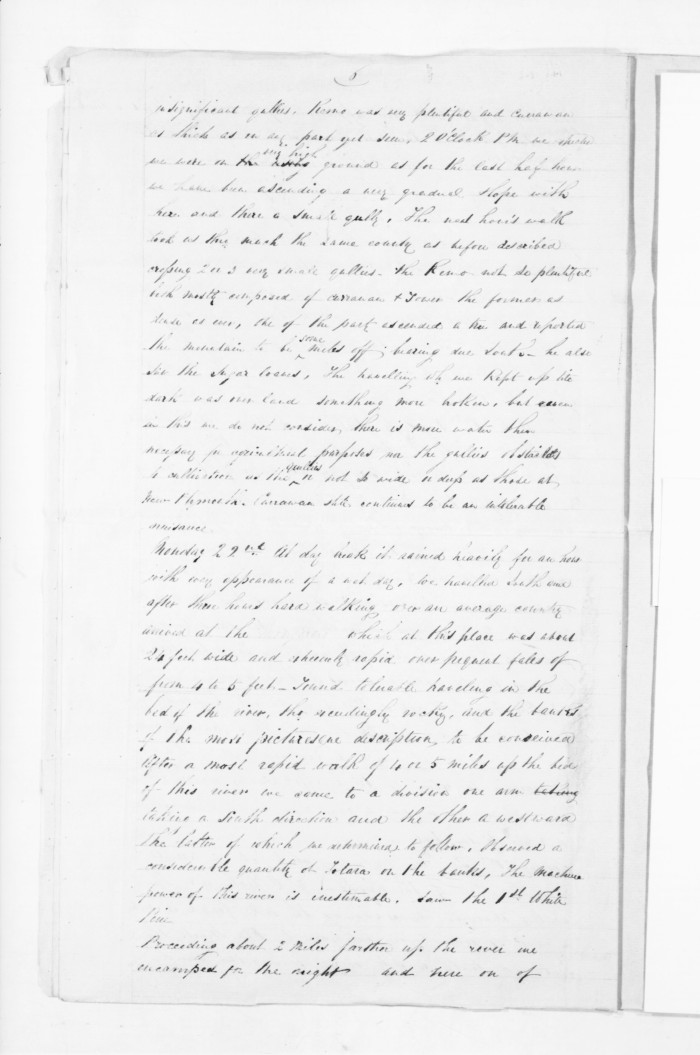 6
insignificant gullies. Remo was very plentiful and Carrawau
as thick as in any part yet seen, 2 O'Clock PM we
we were on very high ground as for the last half hour
we have been ascending a very gradual slope with
here and there a small gully. The next hour's walk
took us thro much the same country as before described
crossing 2 or 3 very small gullies - the Remo not so plentiful
bush mostly composed of carrawau & Tower the former as
dense as ever, one of the party ascended a tree and reported
the mountain to be some miles off; bearing due South - he also
saw the Sugar loaves. The travelling wh we kept up till
dark was over land something more broken, but even
in this we do not consider there is more water than
necessary for agricultural purposes nor the gullies obstacles
to cultivation as the gullies are not so wide or deep as those at
New Plymouth. Carrawau still continues to be an intolerable
nuisance.
Monday 22nd. At day break it rained heavily for an hour
with every appearance of a wet day. We travelled South and
after three hours hard walking over an average country
arrived at the which at this place was about
24 feet wide and extremely rapid over frequent falls of
from 4 to 5 feet - Found tolerable traveling in the
bed of the river, tho exceedingly rocky, and the banks
of the most picturesque description to be conceived
After a most rapid walk of 4 or 5 miles up the bed
of this river we came to a division one arm taking
taking a South direction and the other a westward
the latter of which we determined to follow. Observed a
considerable quantity of Totara on the banks, The machine
power of this river is inestimable. Saw the 1st White
Pine
Proceeding about 2 miles farther up the river we
encamped for the night and here on of